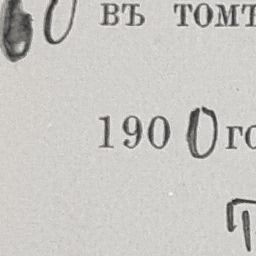 60 въ томъ
1900 го